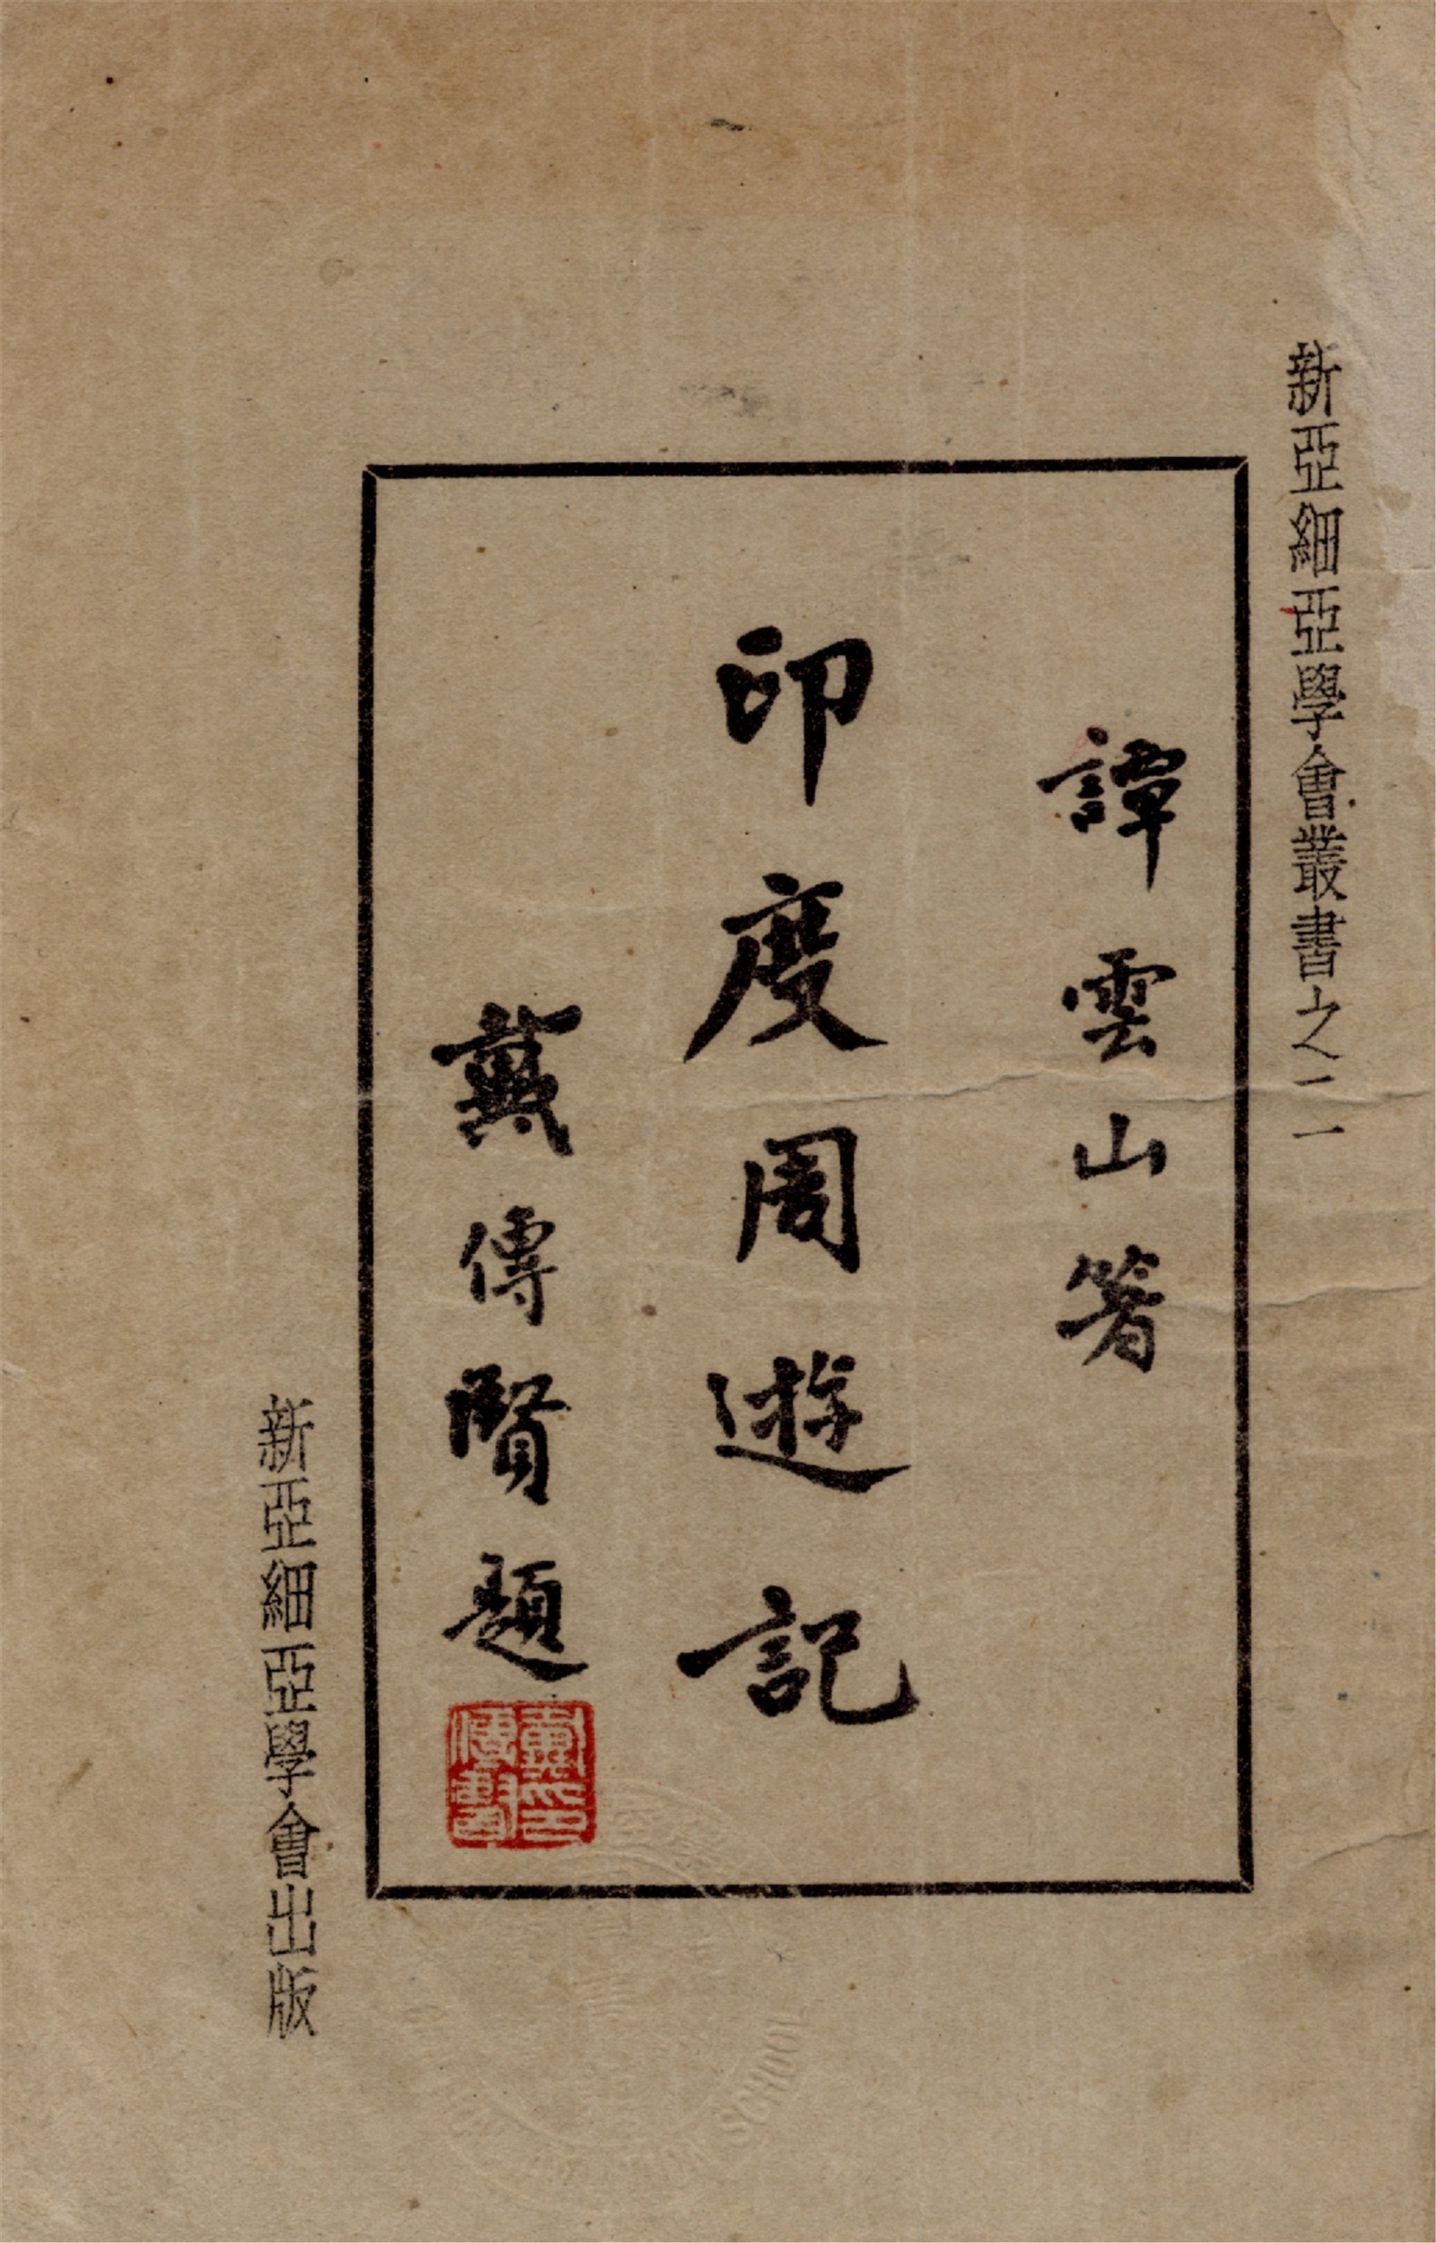 新亞細亞學會叢書之二
譚雲山箸
印度周遊記
戴傳賢題
新亞細亞學會出版
SCHOOL